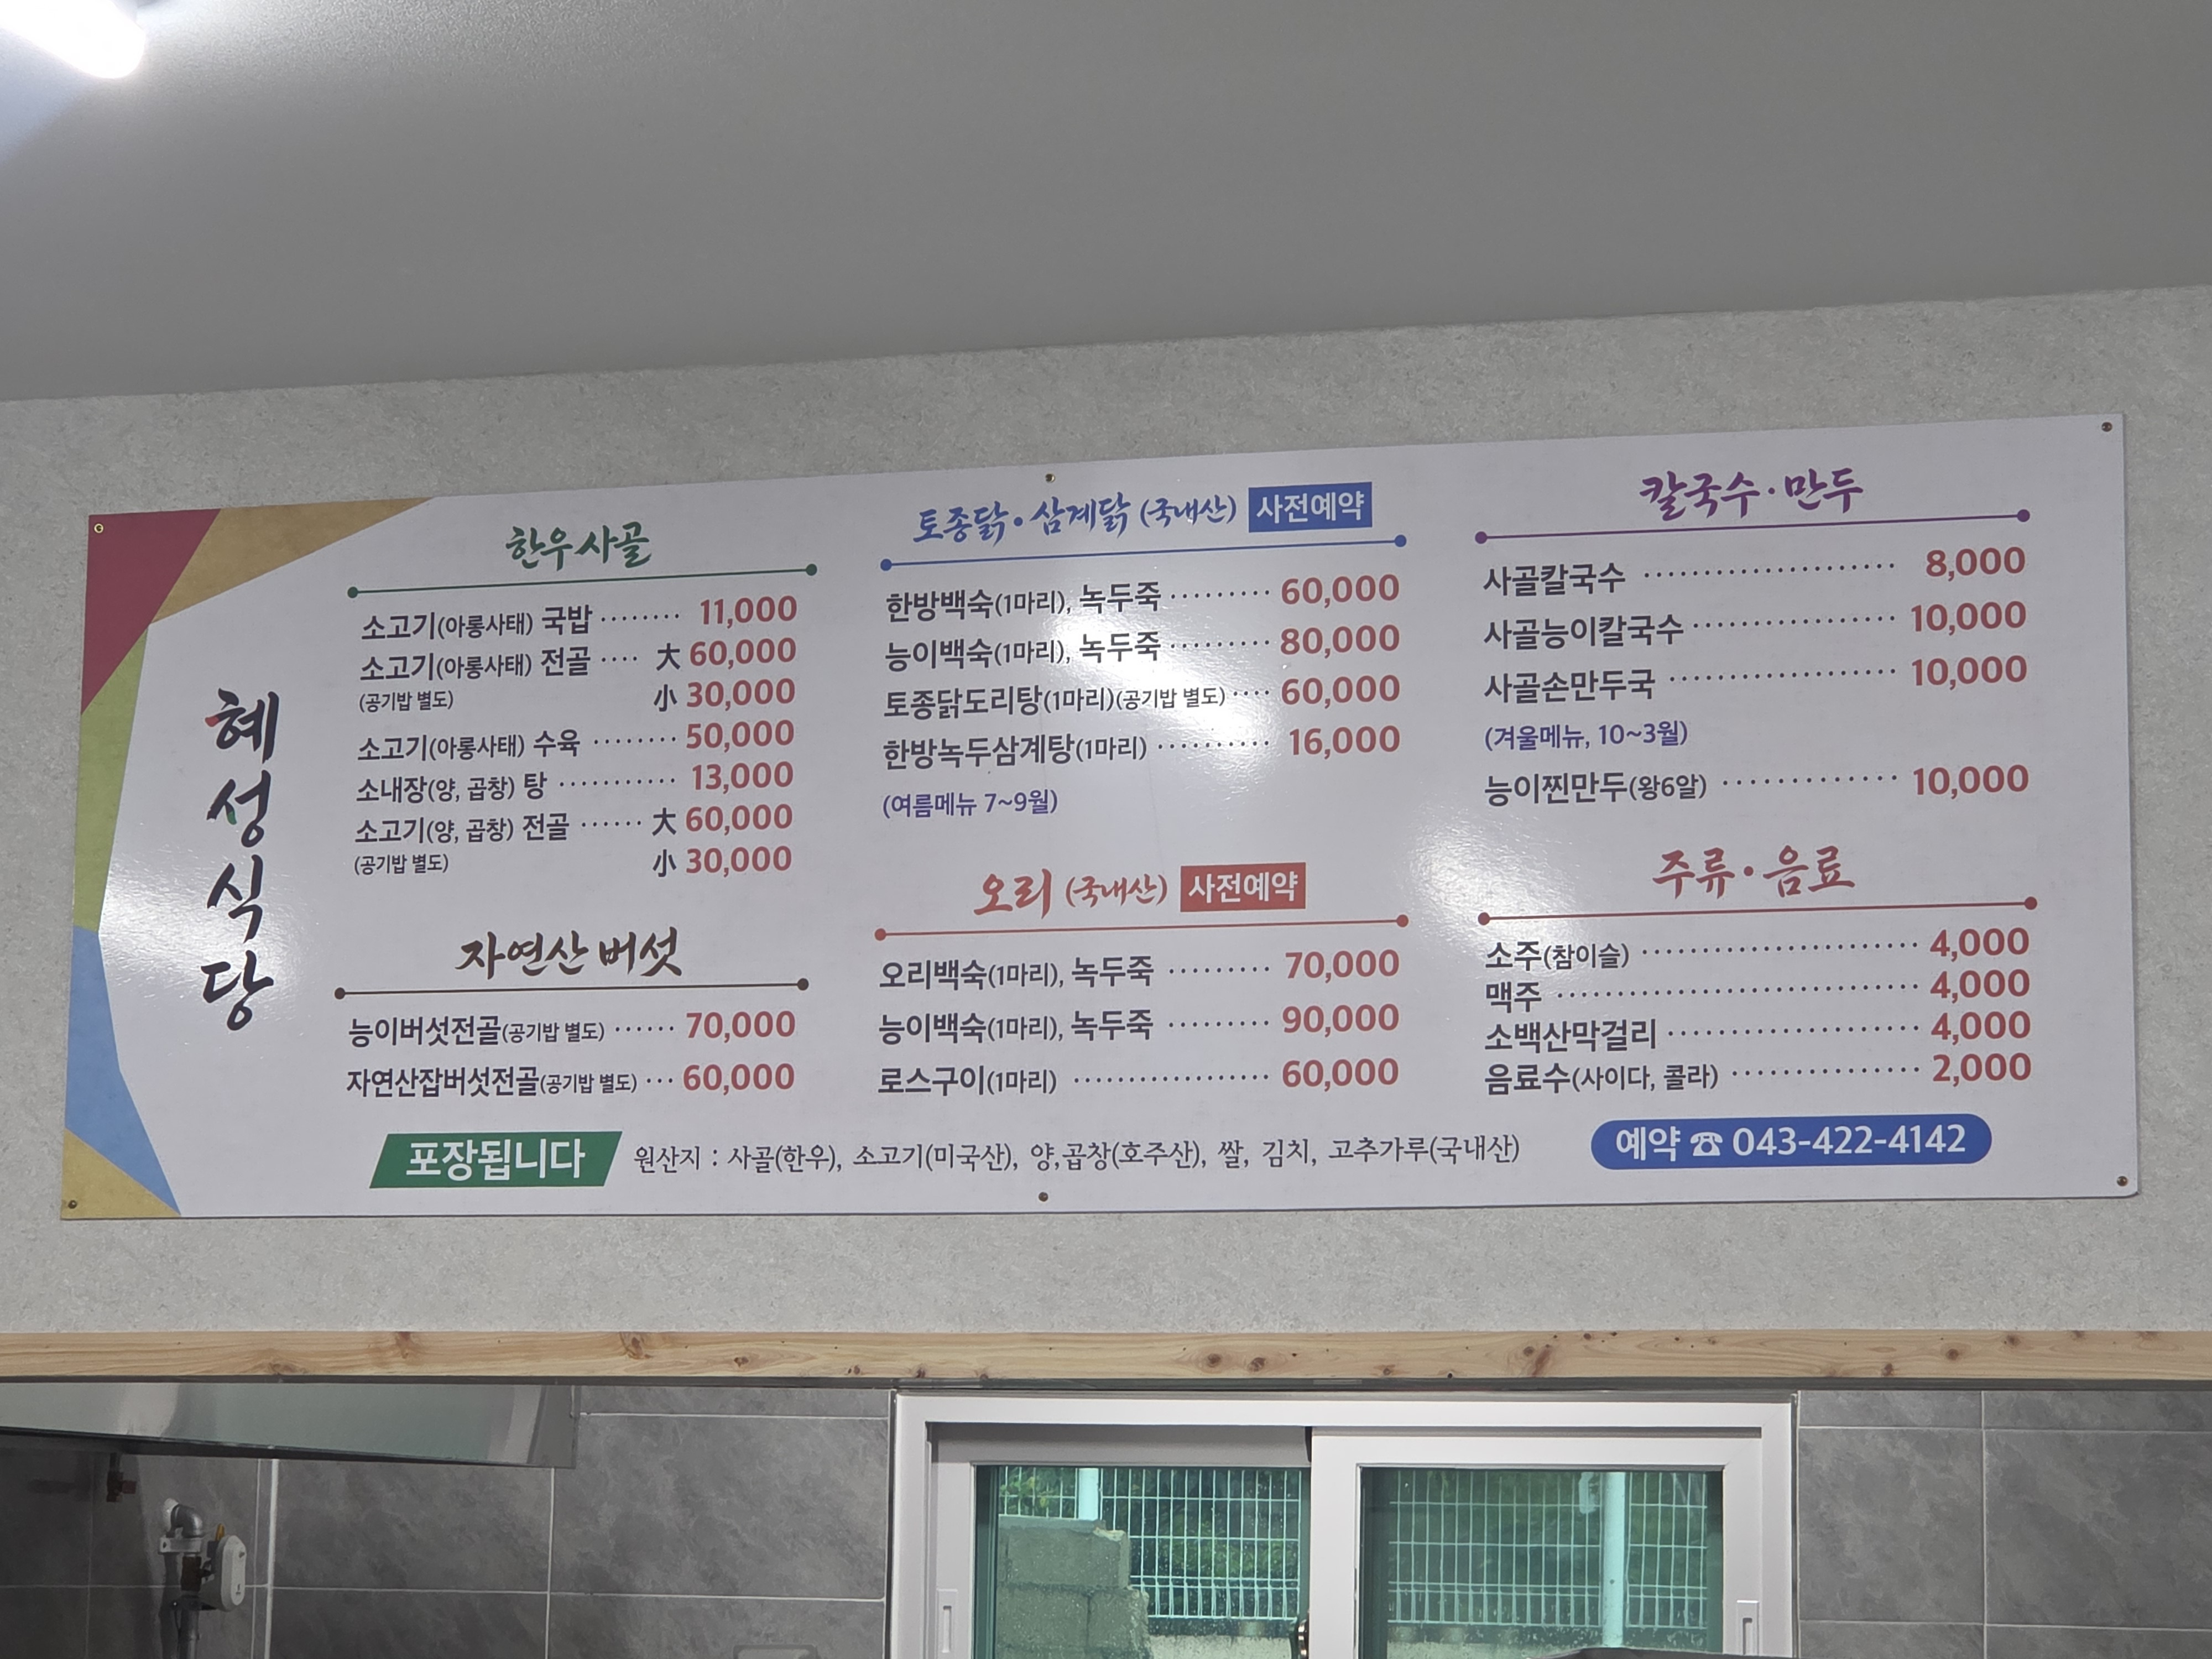 혜성식당
한우사골
소고기(아롱사태) 국밥 ········ 11,000
소고기(아롱사태) 전골 ···· 大 60,000
(공기밥 별도) 小 30,000
소고기(아롱사태) 수육 ········ 50,000
소내장(양, 곱창) 탕 ·········· 13,000
소고기(양, 곱창) 전골 ······ 大 60,000
(공기밥 별도) 小 30,000
자연산 버섯
능이버섯전골(공기밥 별도) ······ 70,000
자연산잡버섯전골(공기밥 별도) ··· 60,000
토종닭·삼계닭 (국내산) 사전예약
한방백숙(1마리), 녹두죽 ········· 60,000
능이백숙(1마리), 녹두죽 ········· 80,000
토종닭도리탕(1마리)(공기밥 별도) ···· 60,000
한방녹두삼계탕(1마리) ·········· 16,000
(여름메뉴 7~9월)
오리 (국내산) 사전예약
오리백숙(1마리), 녹두죽 ········· 70,000
능이백숙(1마리), 녹두죽 ········· 90,000
로스구이(1마리) ················· 60,000
칼국수·만두
사골칼국수 ····················· 8,000
사골능이칼국수 ················· 10,000
사골손만두국 ··················· 10,000
(겨울메뉴, 10~3월)
능이찐만두(왕6알) ·············· 10,000
주류·음료
소주(참이슬) ······················· 4,000
맥주 ······························ 4,000
소백산막걸리 ····················· 4,000
음료수(사이다, 콜라) ··············· 2,000
포장됩니다 원산지 : 사골(한우), 소고기(미국산), 양,곱창(호주산), 쌀, 김치, 고추가루(국내산)
예약 ☎ 043-422-4142